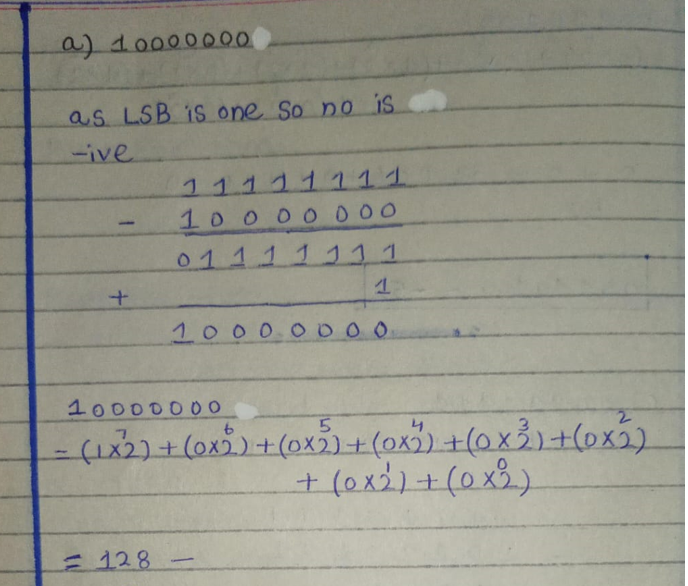 a) 10000000
as LSB is one so no is
-ive
1 1 1 1 1 1 1 1
- 1 0 0 0 0 0 0 0
0 1 1 1 1 1 1 1
+ 1
1 0 0 0 0 0 0 0
10000000
= (1×2⁷) + (0×2⁶) + (0×2⁵) + (0×2⁴) + (0×2³) + (0×2²)
+ (0×2¹) + (0×2⁰)
= 128 —